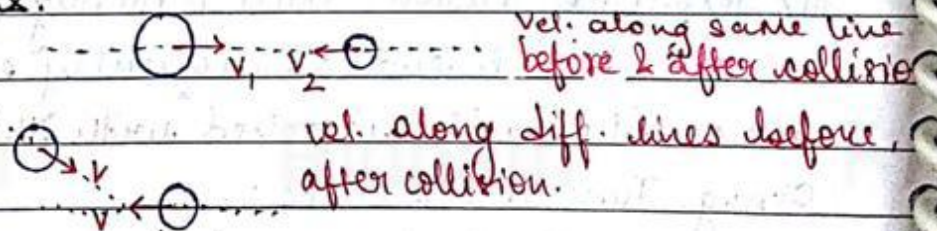 Vel. along same line
V₁ V₂ before & after collisio
vel. along diff. lines before,
V after collision.
V